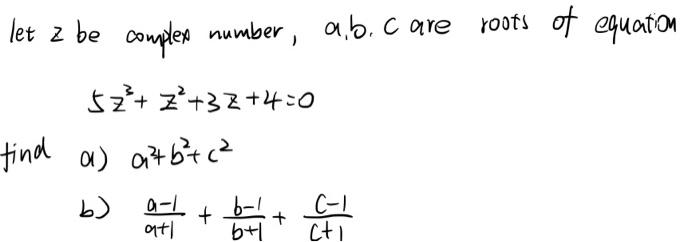 let z be complex number, a,b,c are roots of equation
5z³+z²+3z+4=0
find a) a²+b²+c²
b) (a-1)/(a+1) + (b-1)/(b+1) + (c-1)/(c+1)